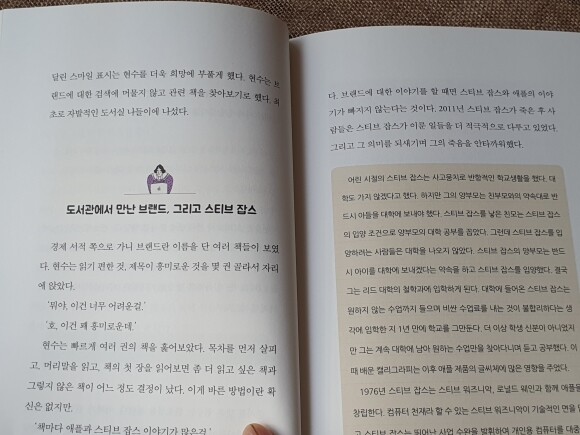 달린 스마일 표시는 현수를 더욱 희망에 부풀게 했다. 현수는 브
랜드에 대한 검색에 머물지 않고 관련 책을 찾아보기로 했다. 최
초로 자발적인 도서실 나들이에 나섰다.
도서관에서 만난 브랜드, 그리고 스티브 잡스
경제 서적 쪽으로 가니 브랜드란 이름을 단 여러 책들이 보였
다. 현수는 읽기 편한 것, 제목이 흥미로운 것을 몇 권 골라서 자리
에 앉았다.
'뭐야, 이건 너무 어려운걸.'
'호, 이건 꽤 흥미로운데.'
현수는 빠르게 여러 권의 책을 훑어보았다. 목차를 먼저 살피
고, 머리말을 읽고, 책의 첫 장을 읽어보면 좀 더 읽고 싶은 책과
그렇지 않은 책이 어느 정도 결정이 났다. 이게 바른 방법이란 확
신은 없지만.
'책마다 애플과 스티브 잡스 이야기가 많은걸.'
다. 브랜드에 대한 이야기를 할 때면 스티브 잡스와 애플의 이야
기가 빠지지 않는다는 것이다. 2011년 스티브 잡스가 죽은 후 사
람들은 스티브 잡스가 이룬 일들을 더 적극적으로 다루고 있었다.
그리고 그 의미를 되새기며 그의 죽음을 안타까워했다.
어린 시절의 스티브 잡스는 사고뭉치로 반항적인 학교생활을 했다. 대
학도 가지 않겠다고 했다. 하지만 그의 양부모는 친부모와의 약속대로 반
드시 아들을 대학에 보내야 했다. 스티브 잡스를 낳은 친모는 스티브 잡스
의 입양 조건으로 양부모의 대학 공부를 꼽았다. 그런데 스티브 잡스를 입
양하려는 사람들은 대학을 나오지 않았다. 스티브 잡스의 양부모는 반드
시 아이를 대학에 보내겠다는 약속을 하고 스티브 잡스를 입양했다. 결국
그는 리드 대학의 철학과에 입학하게 된다. 대학에 들어온 스티브 잡스는
원하지 않는 수업까지 들으며 비싼 수업료를 내는 것이 불합리하다는 생
각에 입학한 지 1년 만에 학교를 그만둔다. 더 이상 학생 신분이 아니었지
만 그는 계속 대학에 남아 원하는 수업만을 찾아다니며 듣고 공부했다. 이
때 배운 캘리그라피는 이후 애플 제품의 글씨체에 많은 영향을 주었다.
1976년 스티브 잡스는 스티브 워즈니악, 로널드 웨인과 함께 애플을
창립한다. 컴퓨터 천재라 할 수 있는 스티브 워즈니악이 기술적인 면을
스티브 잡스는 뒤어난 사업 수완을 발휘하며 개인용 컴퓨터를 대중